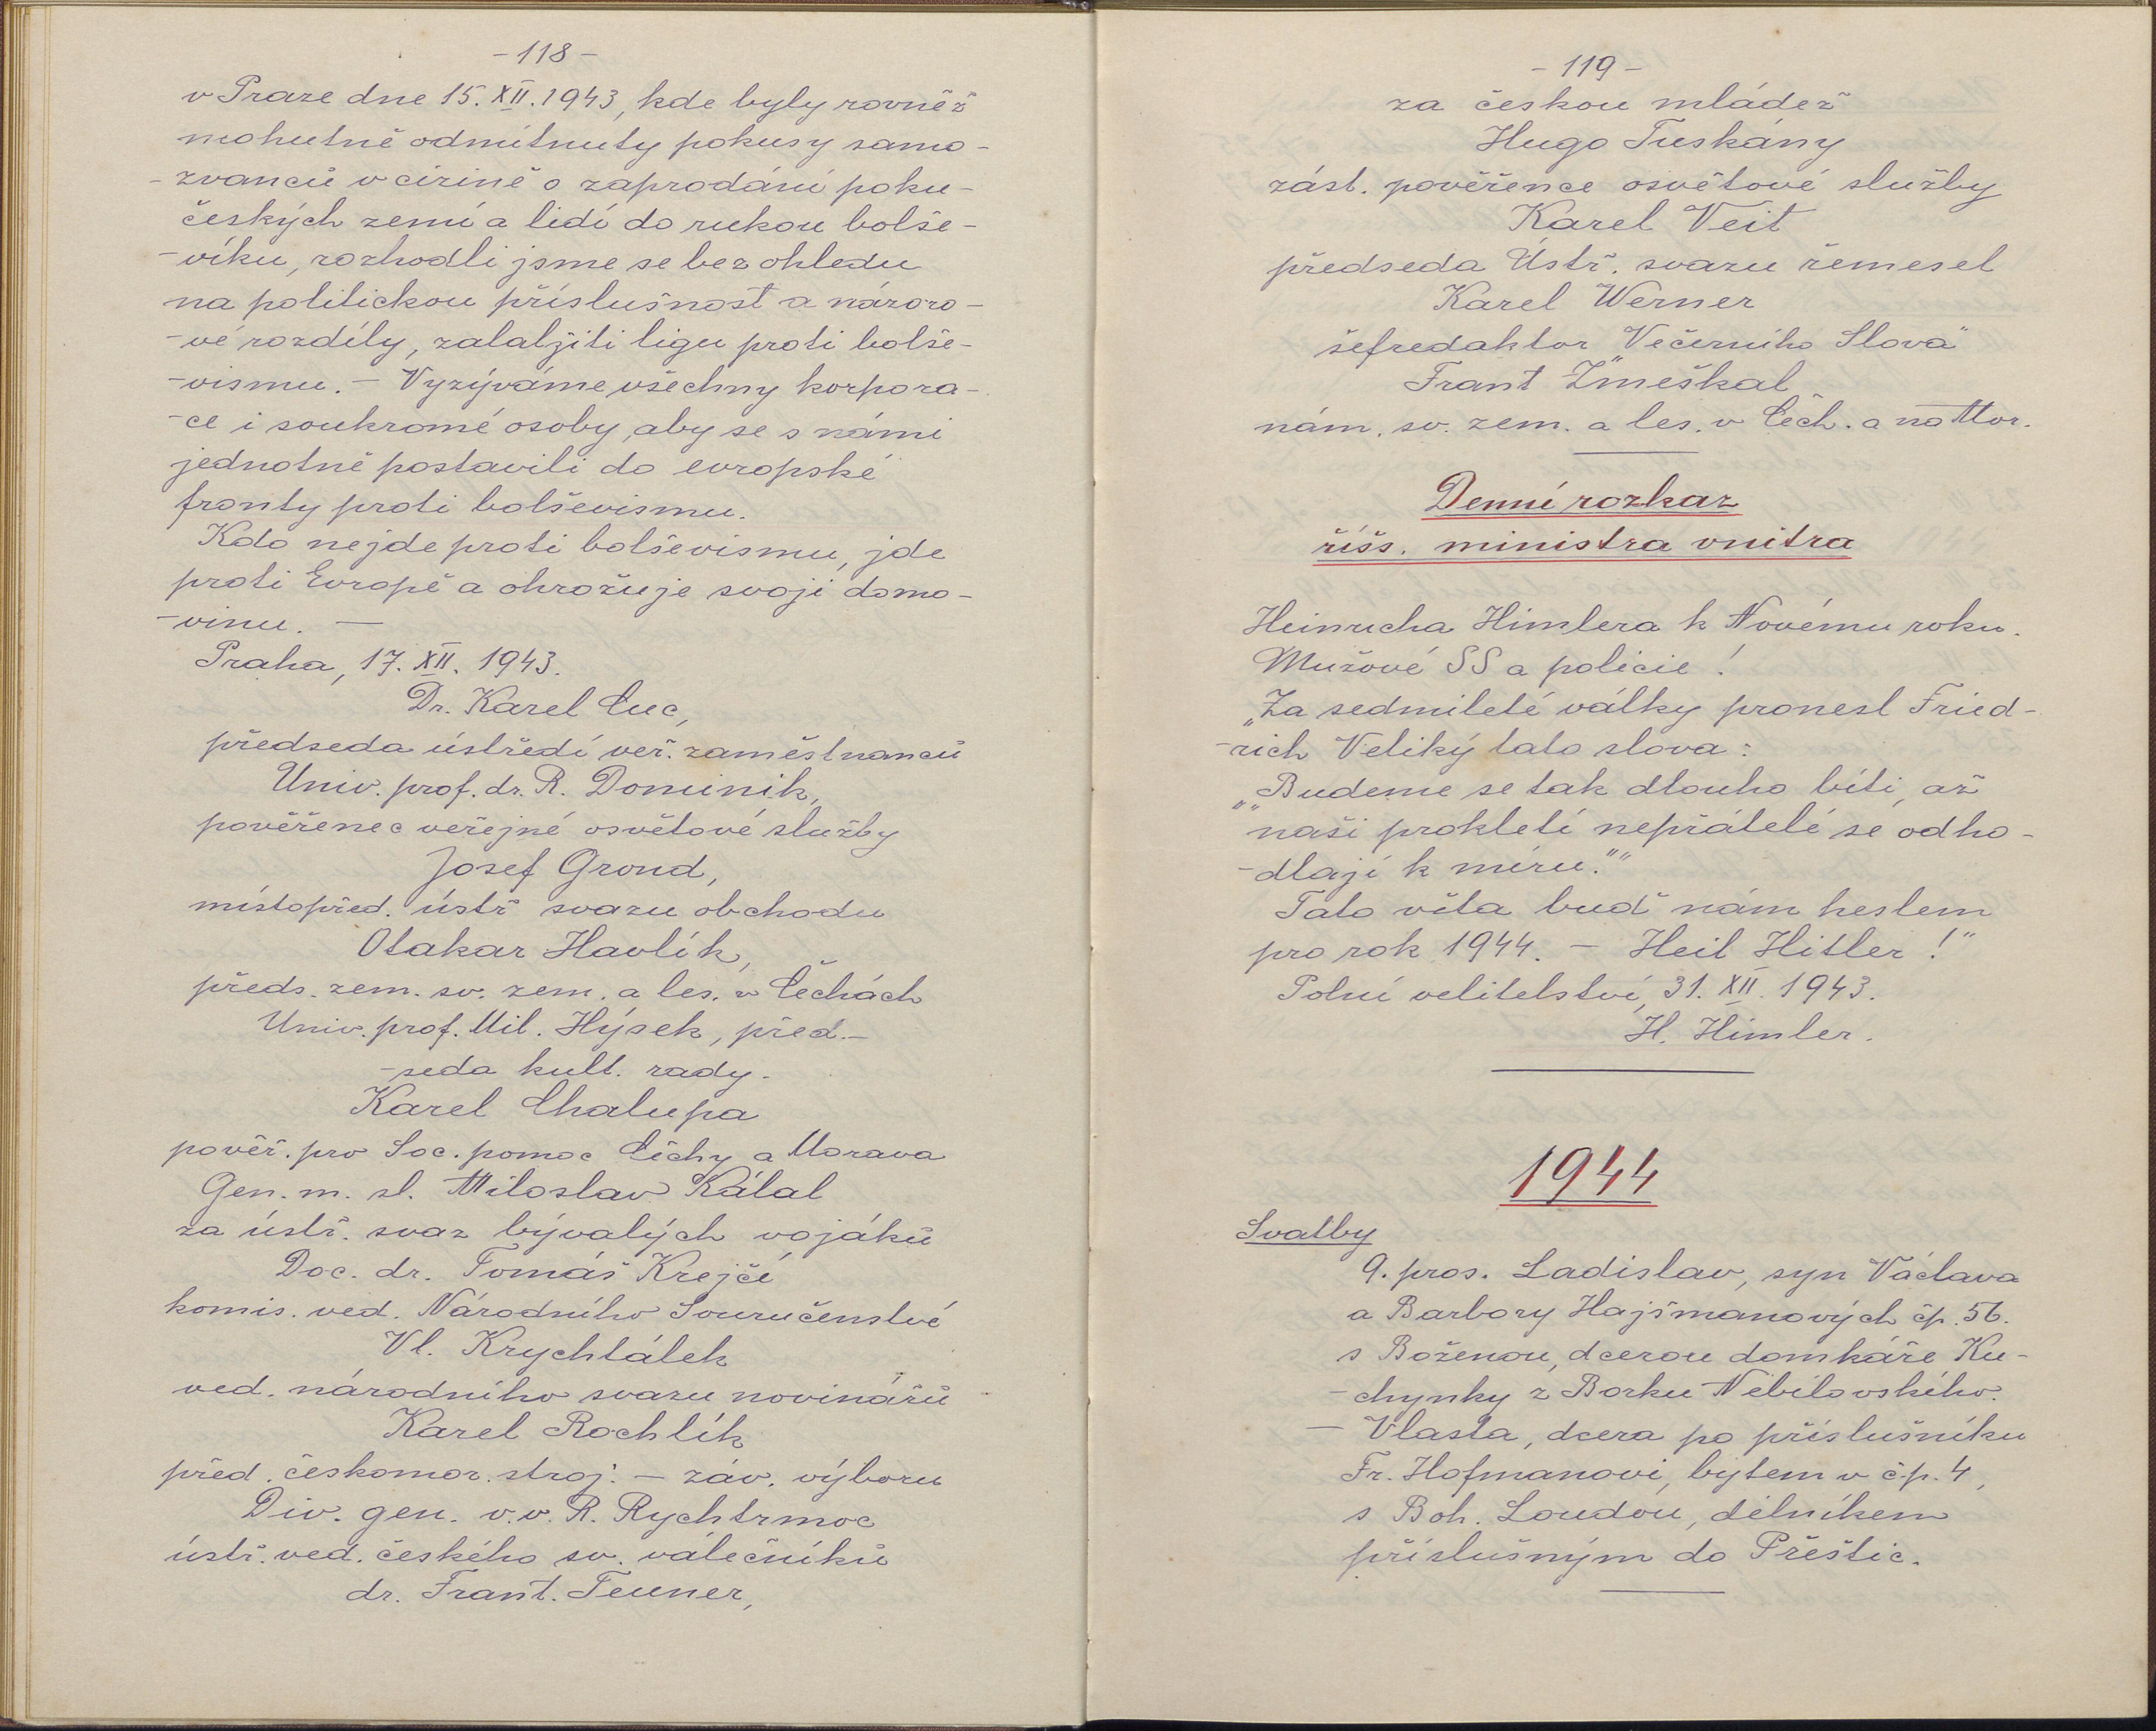 - 118 -
v Praze dne 15. XII. 1943, kde byly rovněž
mohutně odmítnuty pokusy samo-
-zvanců v cizině o zaprodání poku-
českých zemí a lidí do rukou bolše-
-víku, rozhodli jsme se bez ohledu
na politickou příslušnost a názoro-
-vé rozdíly, zalalžiti ligu proti bolše-
-vismu. - Vyzýváme všechny korpora-
-ce i soukromé osoby, aby se s námi
jednotně postavili do evropské
fronty proti bolševismu.
Kdo nejde proti bolševismu, jde
proti Evropě a ohrožuje svoji domo-
-vinu. —
Praha, 17. XII. 1943.
Dr. Karel Čuc,
předseda ústředí veř. zaměstnanců
Univ. prof. dr. R. Dominik,
pověřenec veřejné osvětové služby
Josef Grond,
místopřed. ústř svazu obchodu
Otakar Havlík,
předs. zem. sv. zem. a les. v Čechách
Univ. prof. Mil. Hýsek, před.-
-seda kult. rady.
Karel Chalupa
pověř. pro Soc. pomoc Čechy a Morava
Gen. m. sl. Miloslav Kálal
za ústř. svaz bývalých vojáků
Doc. dr. Tomáš Krejčí
komis. ved. Národního Souručenství
Vl. Krychtálek
ved. národního svazu novinářů
Karel Rochlík
před. českomor. stroj. - záv. výboru
Div. gen. v.v. R. Rychtrmoc
ústř. ved. českého sv. válečníků
dr. Frant. Teuner,
- 119 -
za českou mládež
Hugo Tuskány
zást. pověřence osvětové služby
Karel Veit
předseda Ústř. svazu řemesel
Karel Werner
šefredaktor „Večerního Slova"
Frant Žmeškal
nám. sv. zem. a les. v Čech. a na Mor.
Denní rozkaz
říšs. ministra vnitra
Heinricha Himlera k Novému roku.
Mužové SS a policie!
„Za sedmileté války pronesl Fried-
-rich Veliký tato slova:
„„Budeme se tak dlouho bíti, až
naši prokletí nepřátelé se odho-
-dlají k míru.""
Tato věta buď nám heslem
pro rok 1944. - Heil Hitler!"
Polní velitelství, 31. XII. 1943.
H. Himler.
1944
Svatby
9. pros. Ladislav, syn Václava
a Barbory Hajšmanových čp. 56.
s Boženou, dcerou domkáře Ku-
-chynky z Borku Nebílovského.
— Vlasta, dcera po příslušníku
Fr. Hofmanovi, bytem v čp. 4,
s Boh. Loudou, dělníkem
příslušným do Přeštic.